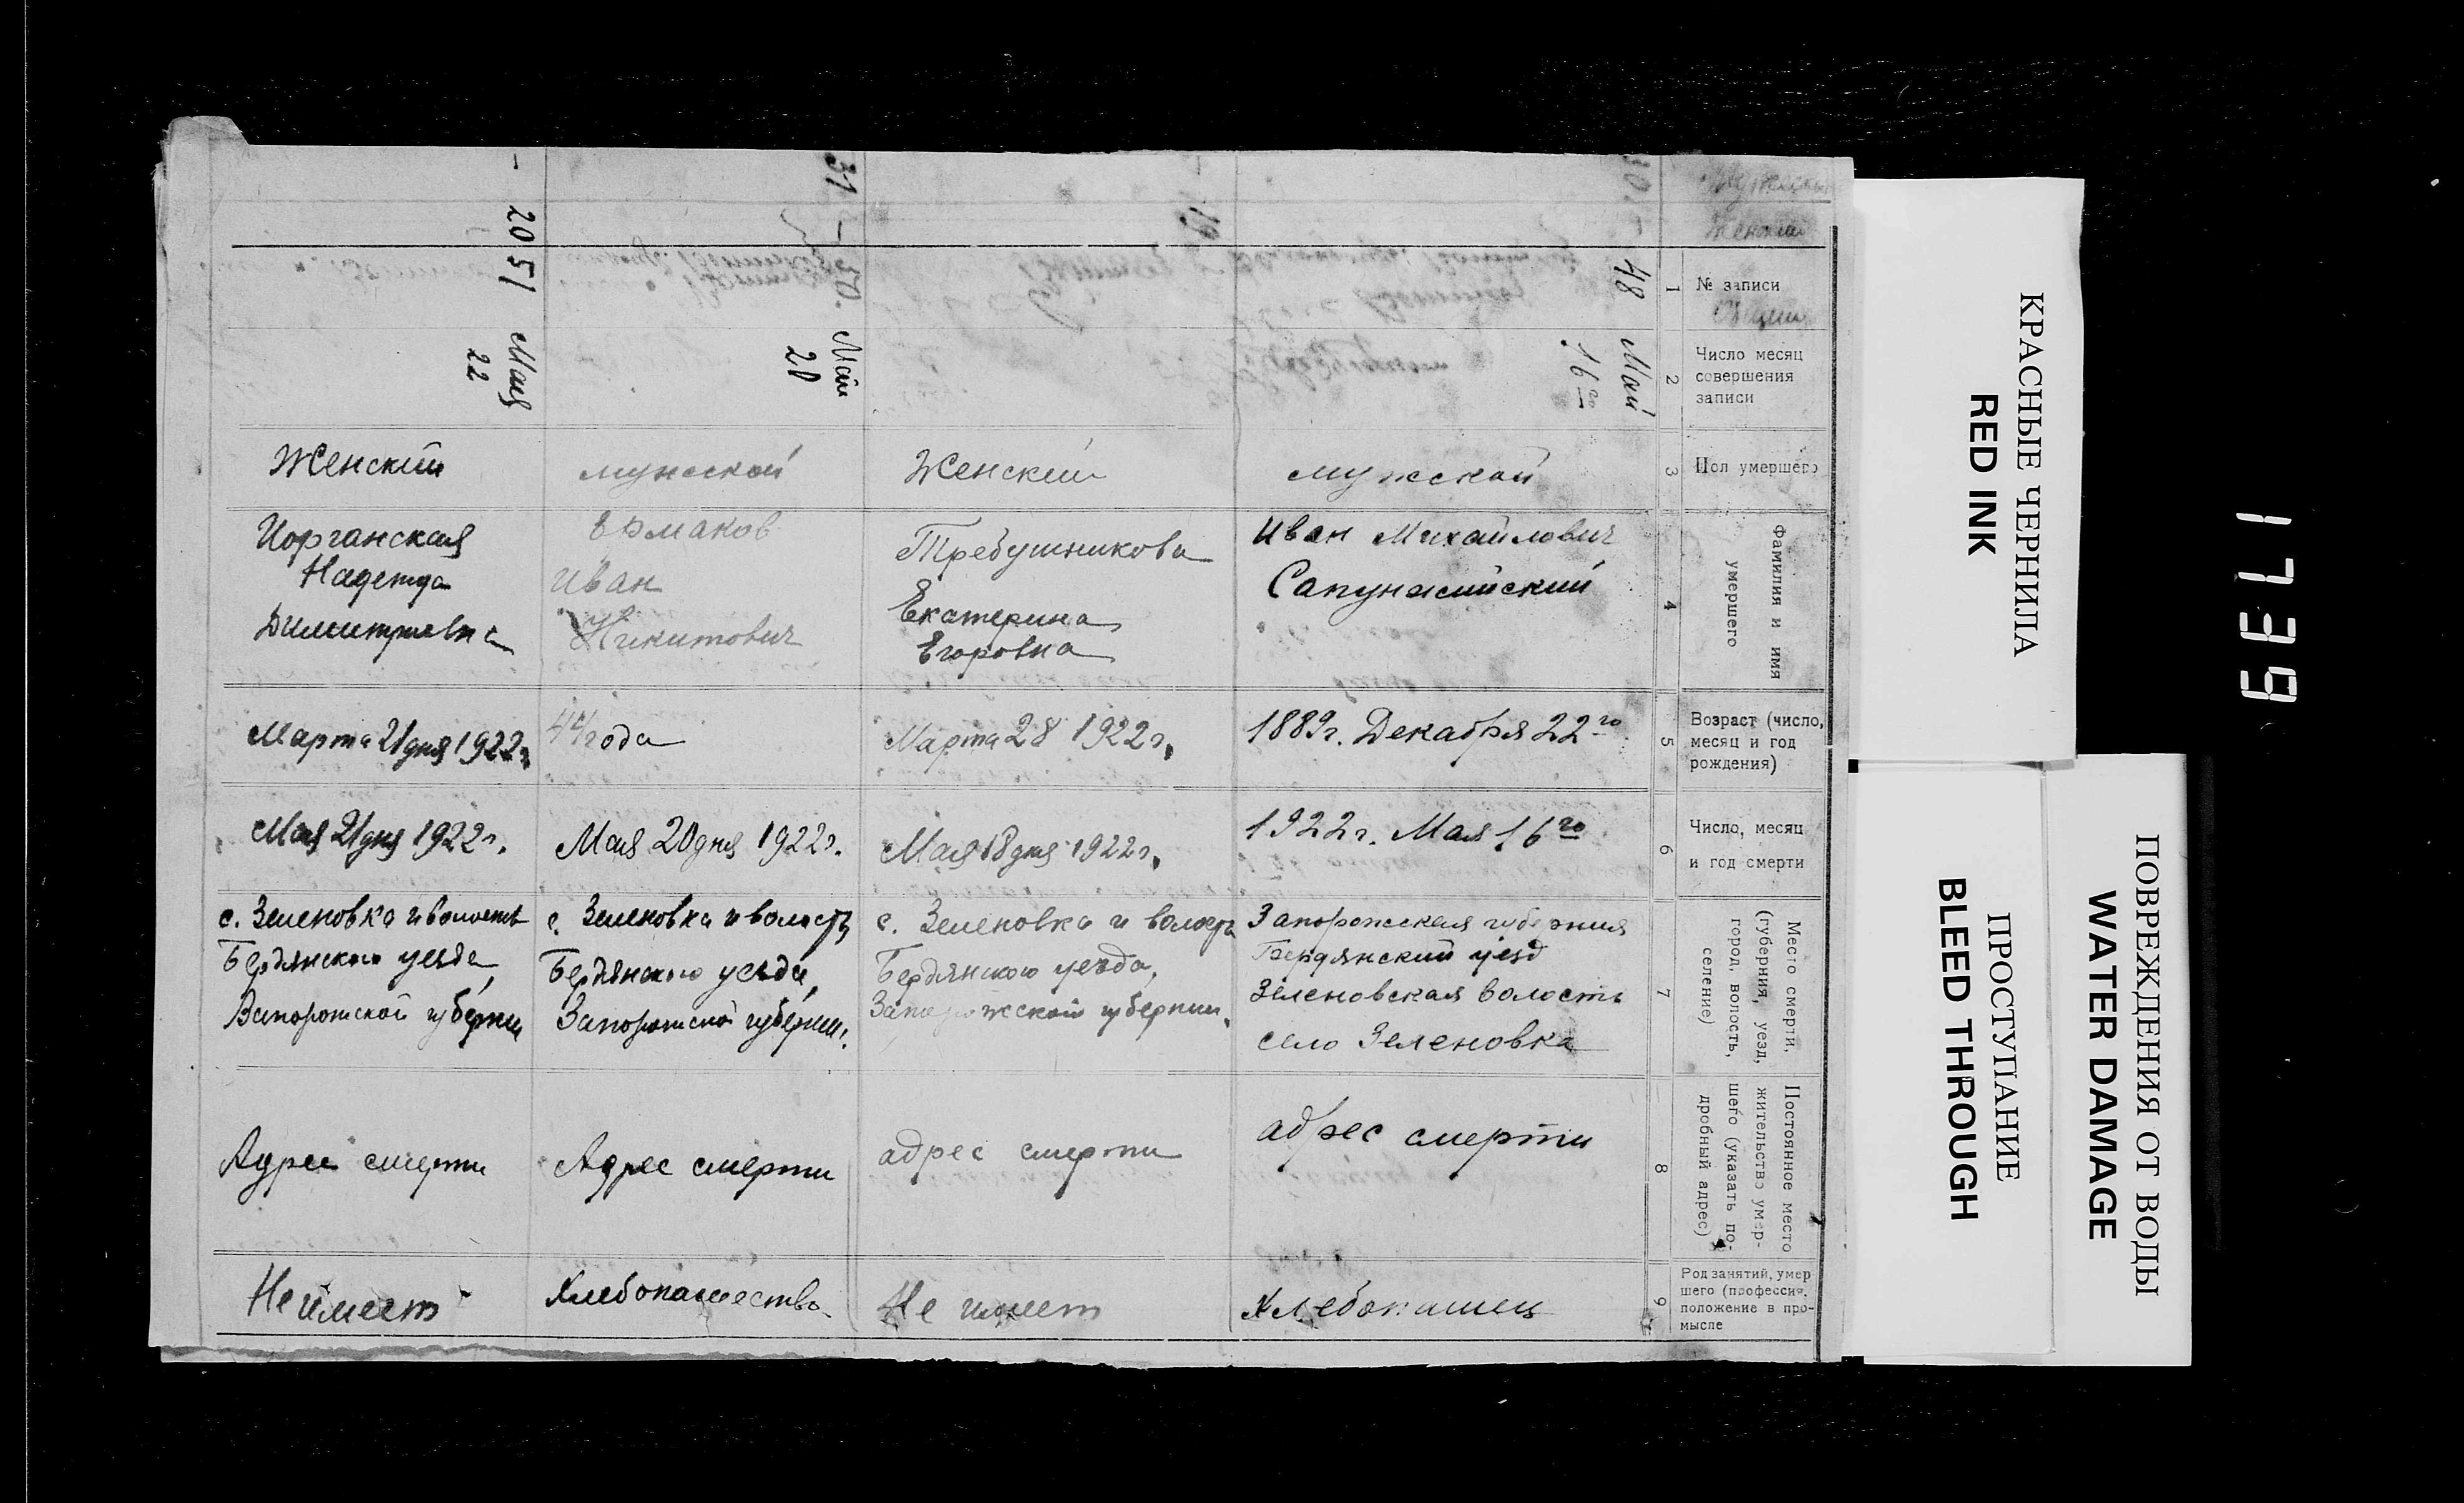 Мужской
Женский
№ записи
Общий
1
Число месяц
совершения
записи
2
Пол умершего
3
Фамилия и имя
умершего
4
Возраст (число,
месяц и год
рождения)
5
Число, месяц
и год смерти
6
Место смерти,
(губерния, уезд,
город, волость,
селение)
7
Постоянное место
жительство умер-
шего (указать по-
дробный адрес)
8
Род занятий, умер-
шего (профессия,
положение в про-
мысле
9
30 -
48
Май
16го
мужской
Иван Михайлович
1889г. Декабря 22го
1922г. Мая 16го
Запорожская губерния
Бердянский уезд
Зеленовская волость
село Зеленовка
адрес смерти
Хлебопашец
- 19
Женский
Требушникова
Екатерина
Егоровна
Марта 28 1922г.
Мая 18 дня 1922г.
с. Зеленовка и волость
Бердянского уезда,
Запорожской губернии.
адрес смерти
Не имеет
31 - 50.
Май
20
мужской
Ермаков
Иван
Никитович
44 года
Мая 20 дня 1922г.
с. Зеленовка и волость
Бердянского уезда,
Запорожской губернии.
Адрес смерти
Хлебопашество
- 20 51
Мая
22
Женский
Иорганская
Надежда
Димитриевна
Марта 21 дня 1922г.
Мая 21 дня 1922г.
с. Зеленовка и волость
Бердянского уезда,
Запорожской губернии
Адрес смерти
Не имеет
КРАСНЫЕ ЧЕРНИЛА
RED INK
ПОВРЕЖДЕНИЯ ОТ ВОДЫ
WATER DAMAGE
ПРОСТУПАНИЕ
BLEED THROUGH
1739